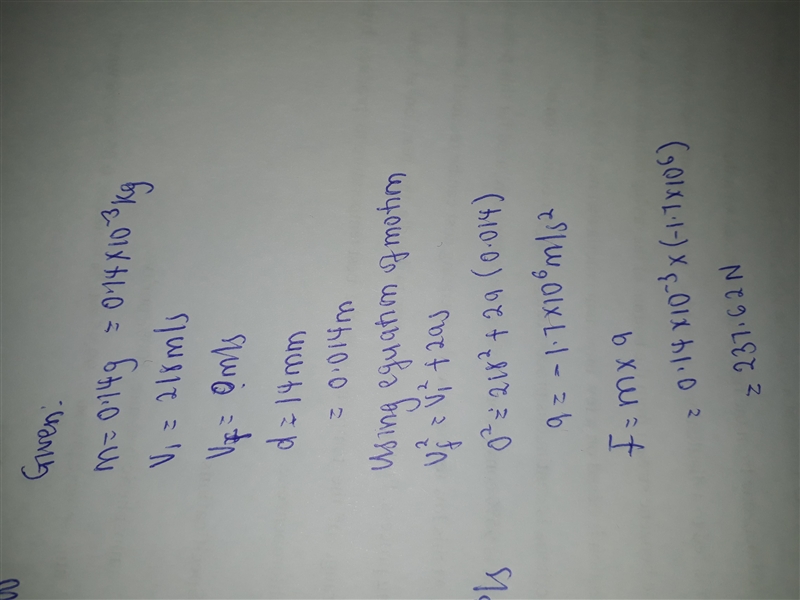 Given:
m = 0.14g = 0.14 x 10^-3 kg
V1 = 218 m/s
Vf = 0 m/s
d = 14mm
= 0.014m
Using equation of motion
Vf^2 = V1^2 + 2as
0^2 = 218^2 + 2a (0.014)
a = -1.7 x 10^6 m/s^2
F = m x a
= 0.14 x 10^-3 x (-1.7 x 10^6)
= 237.62 N